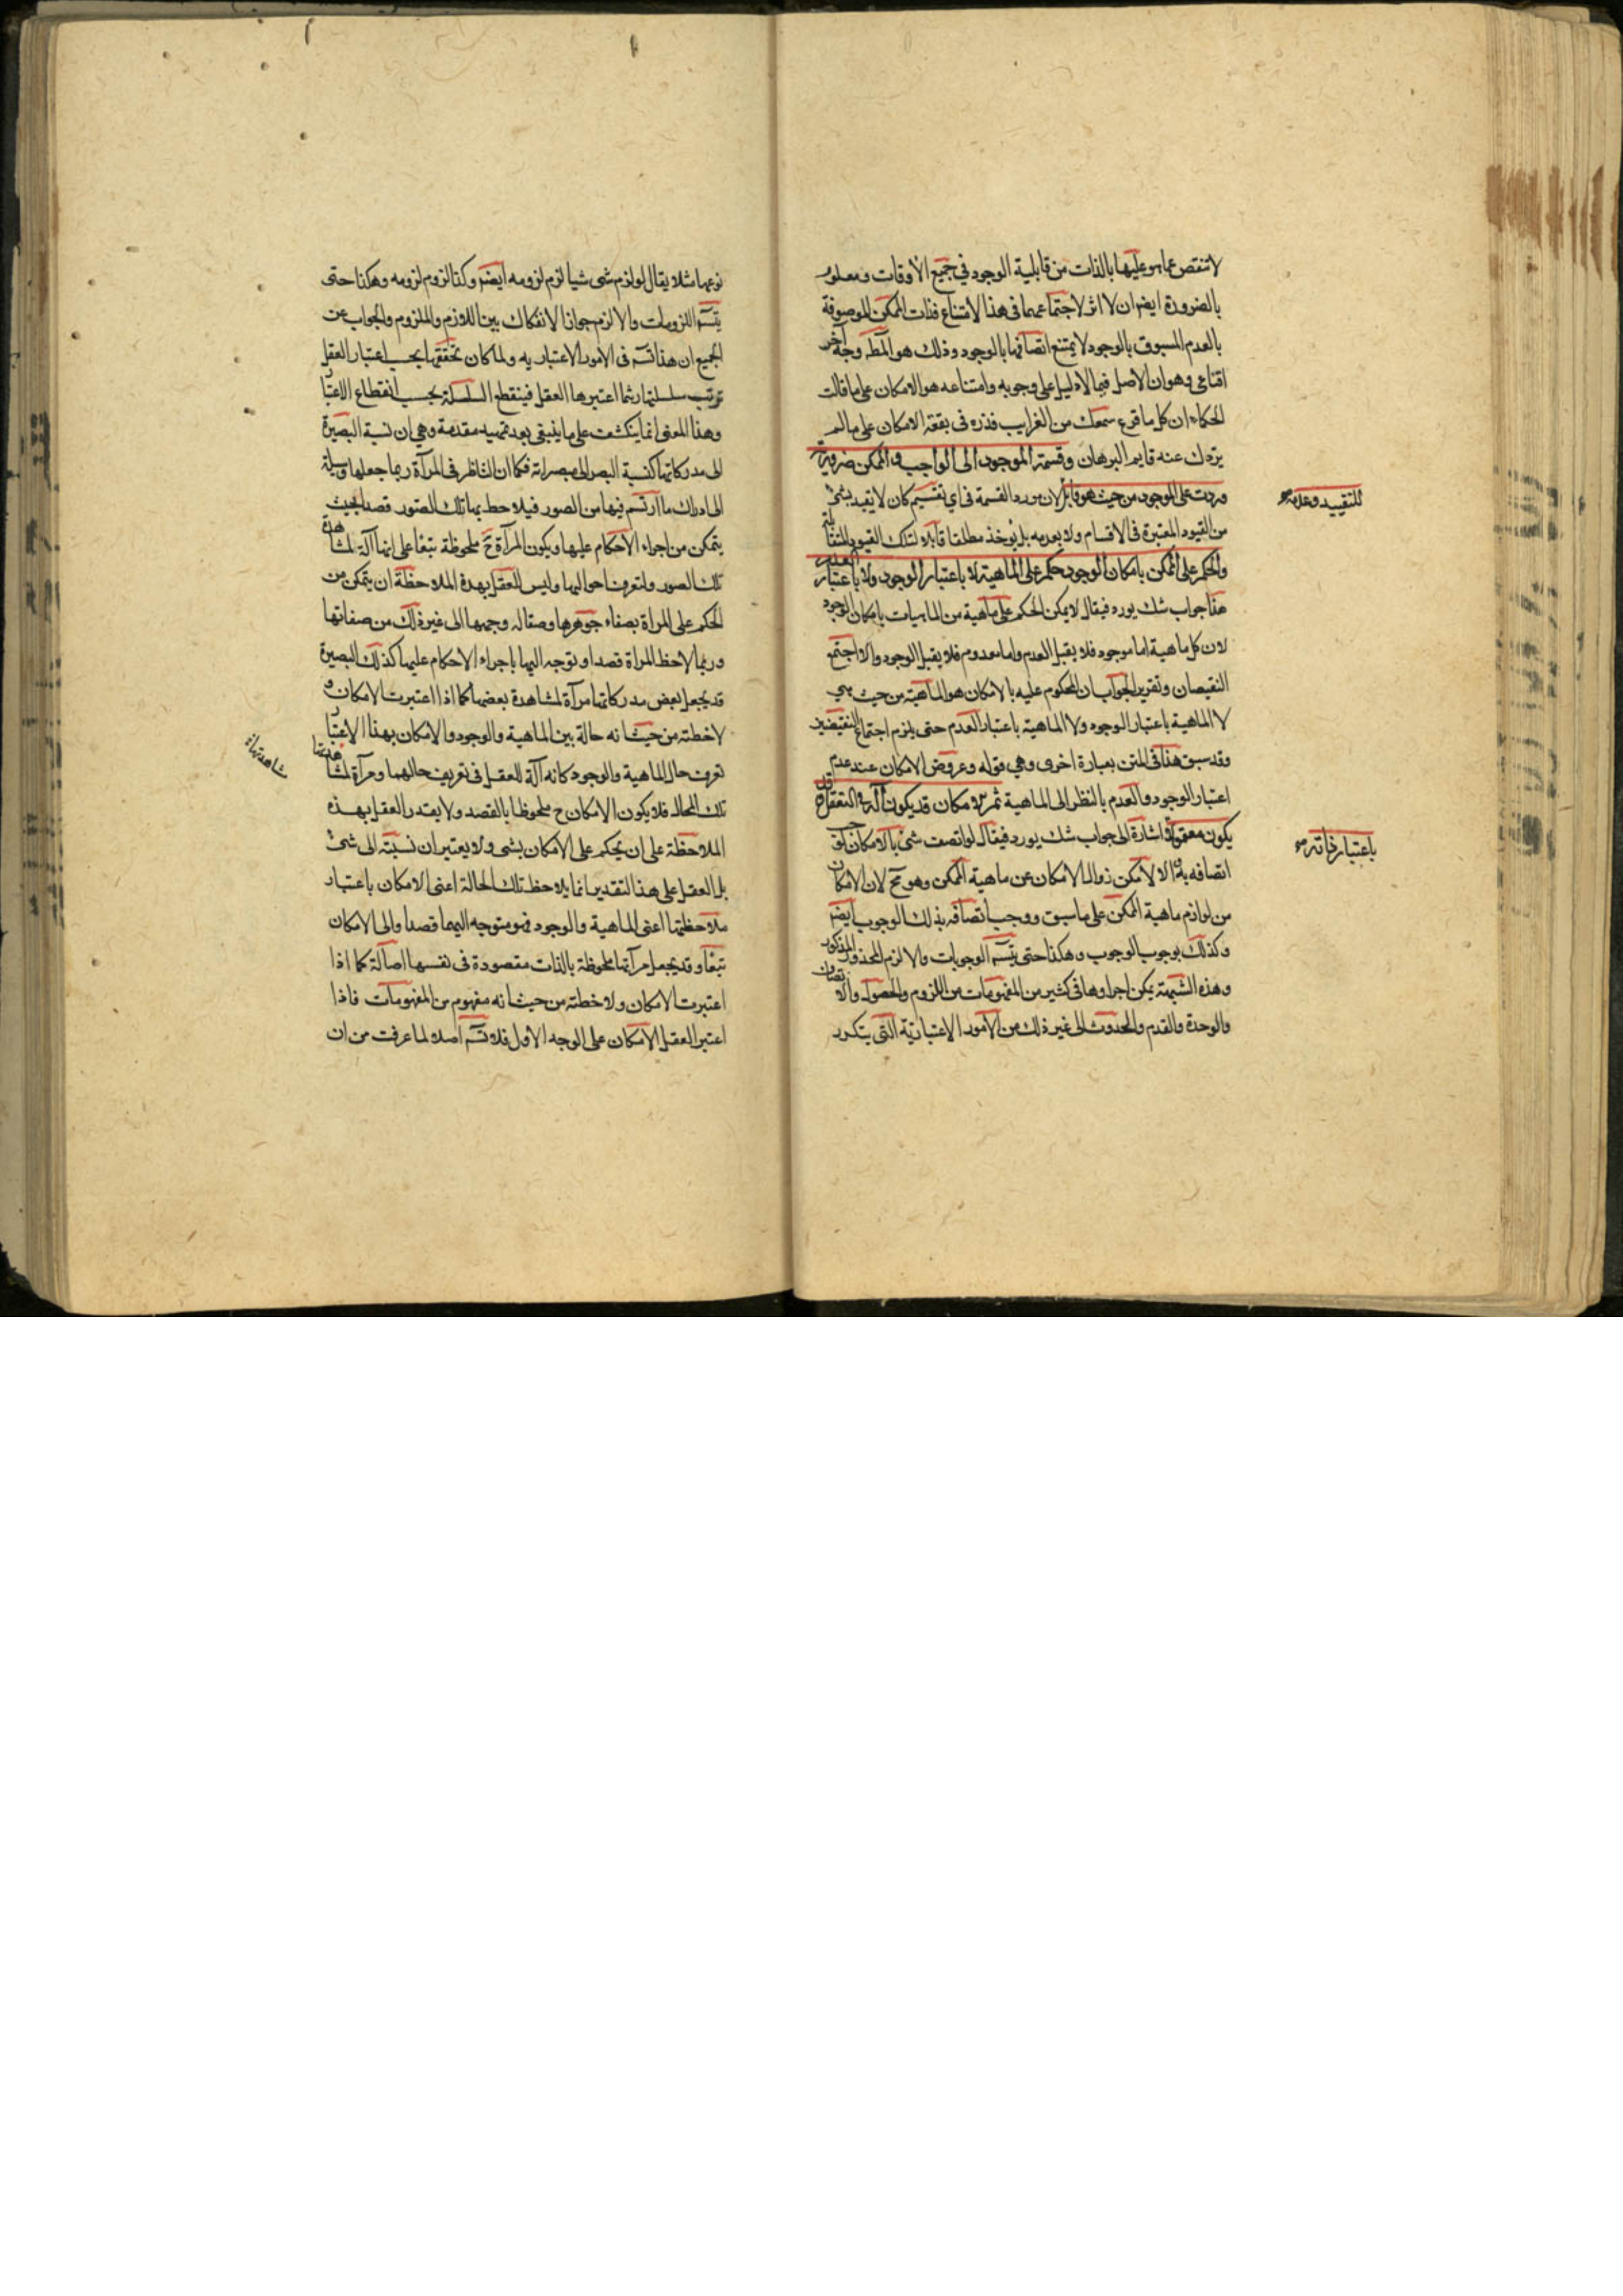 لا تنقص عما هو عليها بالذات من قابلية الوجود في جميع الأوقات ومعلوم
بالضرورة ايضا ان لا اثر لاجتماعهما في هذا الامتناع فذات الممكن الموصوفة
بالعدم المسبوق بالوجود لا يمتنع اتصافها بالوجود وذلك هو المط وجه آخر
اقناعي وهو ان الاصل فيما لا دليل على وجوبه وامتناعه هو الامكان على ما قالت
الحكماء ان كل ما قرع سمعك من الغرايب فذره في بقعة الامكان على ما لم
يزدك عنه قايم البرهان وقسمة الموجود الى الواجب والممكن ضرورية
وردت على الموجود من حيث هو قابل لان مورد القسمة في اي تقسيم كان لا يقيد بشئ
للتقييد وعدمه
من القيود المعتبرة في الاقسام ولا بعدمه بل يؤخذ مطلقا قابلا لتلك القيود المتقابلة
والحكم على الممكن بامكان الوجود حكم على الماهية لا باعتبار الوجود ولا باعتبار العدم
هذا جواب شك يورد فيقال لا يمكن الحكم على ماهية من الماهيات بامكان الوجود
لان كل ماهية اما موجود فلا يقبل العدم واما معدوم فلا يقبل الوجود والا اجتمع
النقيضان وتقرير الجواب ان المحكوم عليه بالامكان هو الماهية من حيث هي
لا الماهية باعتبار الوجود ولا الماهية باعتبار العدم حتى يلزم اجتماع النقيضين
وقد سبق هذا في المتن بعبارة اخرى وهي قوله وعروض الامكان عند عدم
اعتبار الوجود والعدم بالنظر الى الماهية ثم الامكان قد يكون آلة في التعقل وقد
يكون معقولا اشارة الى جواب شك يورد فيقال لو اتصف شئ بالامكان لوجب
باعتبار ذاته
اتصافه به والا لامكن زوال الامكان عن ماهية الممكن وهو مح لان الامكان
من لوازم ماهية الممكن على ما سبق ووجب اتصافه بذلك الوجوب ايضا
وكذلك بوجوب الوجوب وهكذا حتى يتس الوجوبات والا لزم المحذور المذكور
وهذه الشبهة يمكن اجراوها في كثير من المفهومات من اللزوم والحصول والاتصاف
والوحدة والقدم والحدوث الى غير ذلك من الامور الاعتبارية التي يتكرر
نوعها مثلا يقال لو لزم شئ شيا لزم لزومه ايضا وكذا لزوم لزومه وهكذا حتى
يتس اللزومات والا لزم جواز الانفكاك بين اللازم والملزوم والجواب عن
الجميع ان هذا تس في الامور الاعتبارية ولما كان تحققها بحسب اعتبار العقل
ترتب سلسلتها ريثما اعتبرها العقل فينقطع السلسلة بحسب انقطاع الاعتبار
وهذا المعنى انما ينكشف على ما ينبغي بعد تمهيد مقدمة وهي ان نسبة البصيرة
الى مدركاتها كنسبة البصر الى مبصراته فكما ان الناظر في المرآة ربما جعلها وسيلة
الى ادراك ما ارتسم فيها من الصور فيلاحظ بها تلك الصور قصدا بحيث
يتمكن من اجراء الاحكام عليها ويكون المرآة ح ملحوظة تبعا على انها آلة لمشاهدة
تلك الصور ولتعرف احوالها وليس للعقل بهذه الملاحظة ان يتمكن من
الحكم على المراة بصفاء جوهرها وصقاله وجهها الى غير ذلك من صفاتها
وربما لاحظ المراة قصدا وتوجه اليها باجراء الاحكام عليها كذلك البصيرة
قد يجعل بعض مدركاتها مرآة لمشاهدة بعضها كما اذا اعتبرت الامكان و
لاحظته من حيث انه حالة بين الماهية والوجود والامكان بهذا الاعتبار
تعرف حال الماهية والوجود كانه آلة للعقل في تعريف حالهما ومرآة لمشاهدتها
تلك الحال فلا يكون الامكان ح ملحوظا بالقصد ولا يقدر العقل بهذه
الملاحظة على ان يحكم على الامكان بشئ ولا يعتبر ان نسبته الى شئ
بل العقل على هذا التقدير انما يلاحظ تلك الحالة اعني الامكان باعتبار
ملاحظتها اعني الماهية والوجود فهو متوجه اليهما قصدا والى الامكان
تبعا وقد يجعل مرآتها ملحوظة بالذات مقصودة في نفسها اصالة كما اذا
اعتبرت الامكان ولاحظته من حيث انه مفهوم من المفهومات فاذا
اعتبر العقل الامكان على الوجه الاول فلا تس اصلا لما عرفت من ان